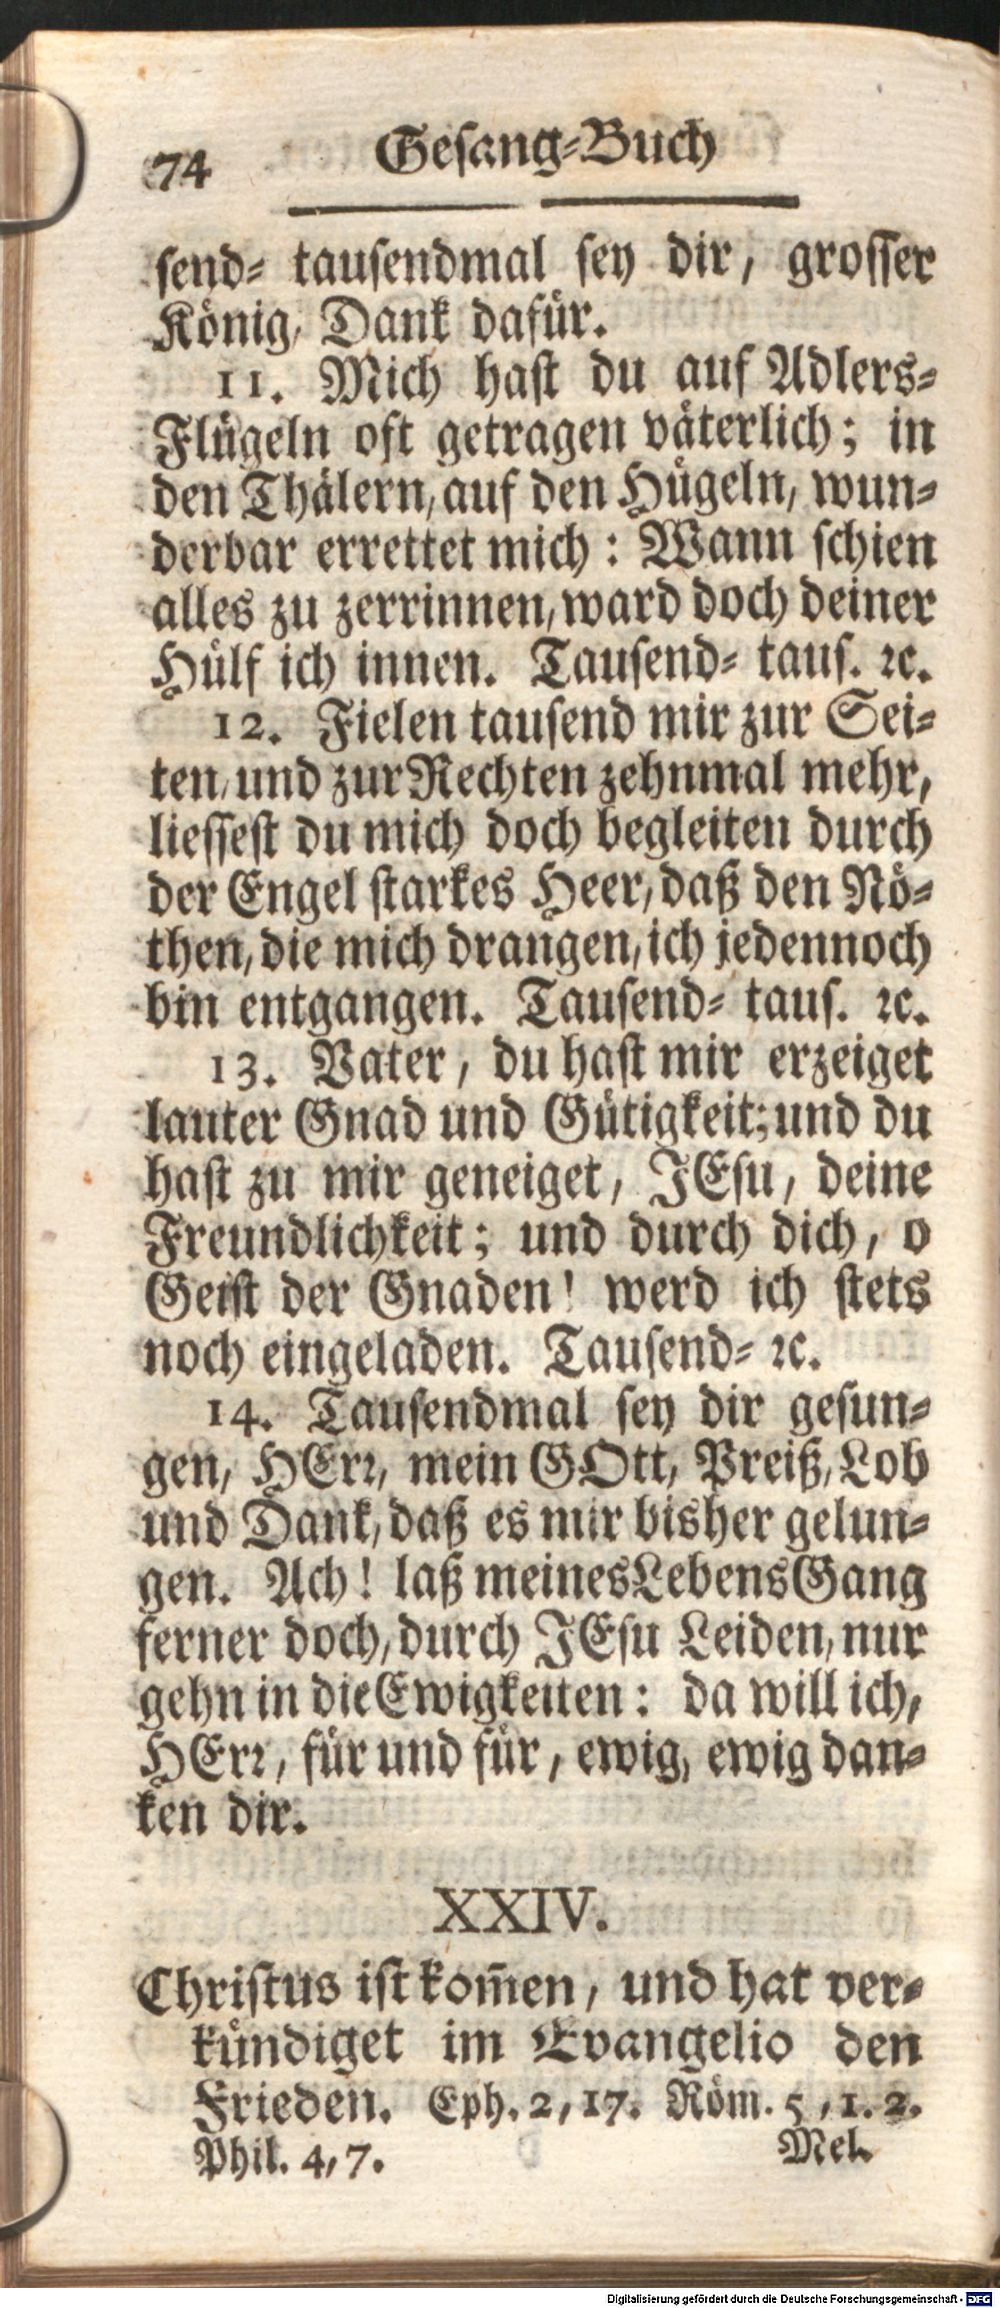 74 Gesang-Buch
send- tausendmal sey dir, grosser
König, Dank dafür.
11. Mich hast du auf Adlers-
Flügeln oft getragen väterlich; in
den Thälern, auf den Hügeln, wun-
derbar errettet mich: Wann schien
alles zu zerrinnen, ward doch deiner
Hülf ich innen. Tausend- taus. ꝛc.
12. Fielen tausend mir zur Sei-
ten, und zur Rechten zehnmal mehr,
liessest du mich doch begleiten durch
der Engel starkes Heer, daß den Nö-
then, die mich drangen, ich jedennoch
bin entgangen. Tausend- taus. ꝛc.
13. Vater, du hast mir erzeiget
lauter Gnad und Gütigkeit; und du
hast zu mir geneiget, JEsu, deine
Freundlichkeit; und durch dich, o
Geist der Gnaden! werd ich stets
noch eingeladen. Tausend- ꝛc.
14. Tausendmal sey dir gesun-
gen, HErꝛ, mein GOtt, Preiß, Lob
und Dank, daß es mir bisher gelun-
gen. Ach! laß meines Lebens Gang
ferner doch, durch JEsu Leiden, nur
gehn in die Ewigkeiten: da will ich,
HErꝛ, für und für, ewig, ewig dan-
ken dir.
XXIV.
Christus ist kom̃en, und hat ver-
kündiget im Evangelio den
Frieden. Eph. 2, 17. Röm. 5, 1. 2.
Phil. 4, 7. Mel.
Digitalisierung gefördert durch die Deutsche Forschungsgemeinschaft - DFG